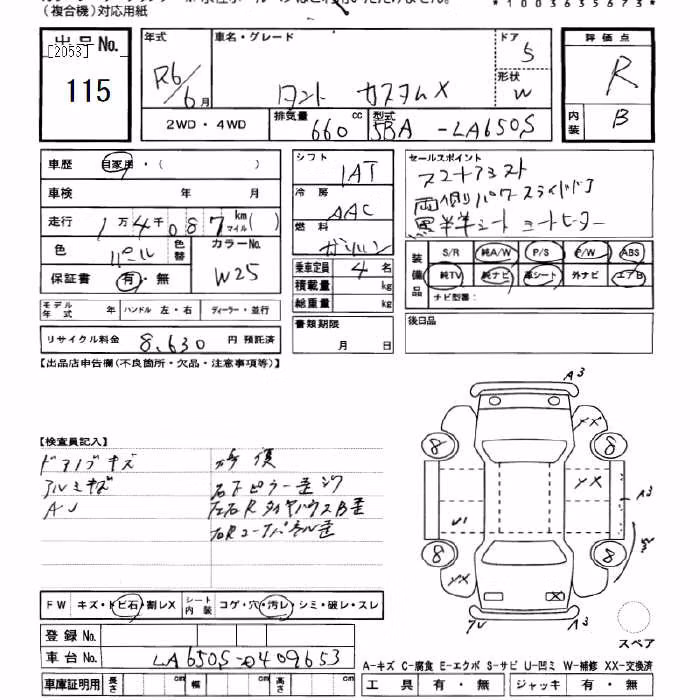 (複合機)対応用紙
*1003635673*
出品No.
[2053]
115
年式
R6/6月
車名・グレード
タント カスタムX
ドア
5
形状
W
2WD・4WD
排気量
660 cc
型式
5BA-LA650S
評価点
R
内装
B
車歴 自家用・( )
車検 年 月
走行 1万4千087 km マイル( )
色 パール 色替
カラーNo.
W25
保証書 有・無
シフト
IAT
冷房
AAC
燃料
ガソリン
乗車定員 4名
積載量 kg
総重量 kg
セールスポイント
スマートアシスト
両側パワースライドドア
黒半革シート シートヒーター
装備品
S/R 純A/W P/S P/W ABS
純TV 純ナビ 革シート 外ナビ エアB
ナビ型番:
モデル年式 年 ハンドル 左・右 ディーラー・並行
リサイクル料金 8,630 円 預託済
書類期限
月 日
後日品
【出品店申告欄(不良箇所・欠品・注意事項等)】
【検査員記入】
ドアノブキズ
アルミキズ
AJ
修復
右下ピラー歪
左右RタイヤハウスB歪
右Rコーナーパネル歪
FW キズ・トビ石・割レX
シート内装 コゲ・穴・汚レ・シミ・破レ・スレ
登録No.
車台No. LA650S-0409653
車庫証明用 長さ cm 幅 cm 高さ cm
A3
XX
8
8
XX
A3
U1
8
8
XX
A3
スペア
A-キズ C-腐食 E-エクボ S-サビ U-凹ミ W-補修 XX-交換済
工具 有・無 ジャッキ 有・無